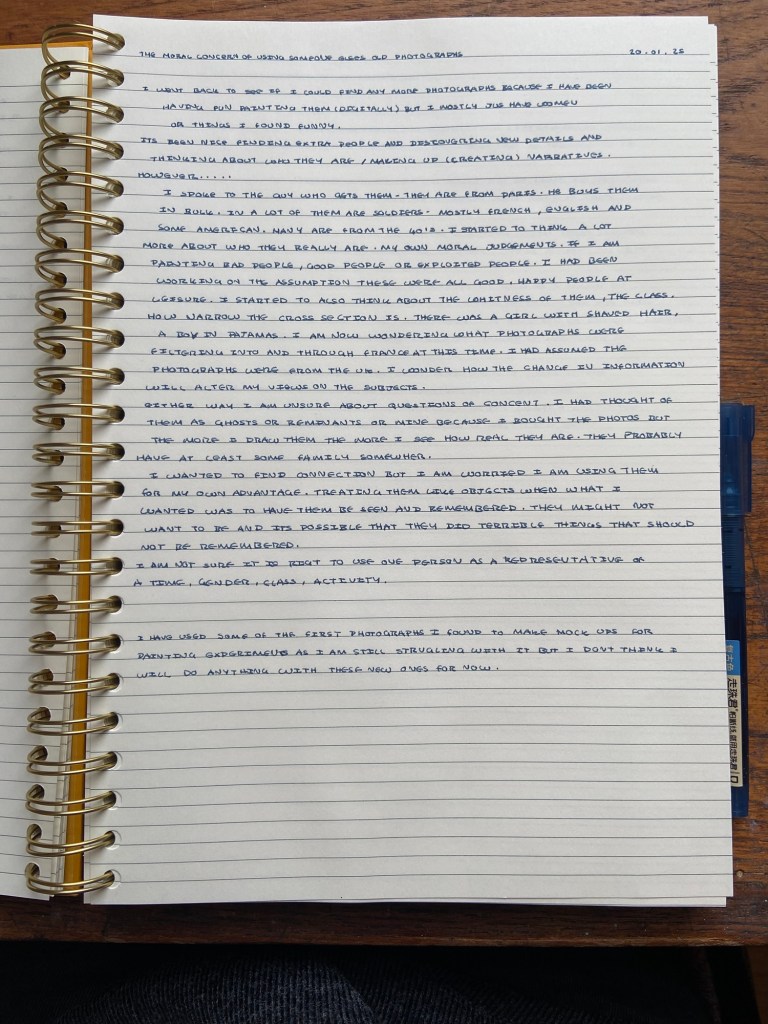 THE MORAL CONCERN OF USING SOMEONE ELSES OLD PHOTOGRAPHS 20.01.25
I WENT BACK TO SEE IF I COULD FIND ANY MORE PHOTOGRAPHS BECAUSE I HAVE BEEN
HAVING FUN PAINTING THEM (DIGITALLY) BUT I MOSTLY JUS HAVE WOMEN
OR THINGS I FOUND FUNNY.
ITS BEEN NICE FINDING EXTRA PEOPLE AND DISCOVERING NEW DETAILS AND
THINKING ABOUT WHO THEY ARE / MAKING UP (CREATING) NARRATIVES.
HOWEVER.....
I SPOKE TO THE GUY WHO GETS THEM - THEY ARE FROM PARIS. HE BUYS THEM
IN BULK. IN A LOT OF THEM ARE SOLDIERS - MOSTLY FRENCH, ENGLISH AND
SOME AMERICAN. MANY ARE FROM THE 40'S. I STARTED TO THINK A LOT
MORE ABOUT WHO THEY REALLY ARE. MY OWN MORAL JUDGEMENTS. IF I AM
PAINTING BAD PEOPLE, GOOD PEOPLE OR EXPLOITED PEOPLE. I HAD BEEN
WORKING ON THE ASSUMPTION THESE WERE ALL GOOD, HAPPY PEOPLE AT
LEISURE. I STARTED TO ALSO THINK ABOUT THE WHITNESS OF THEM, THE CLASS.
HOW NARROW THE CROSS SECTION IS. THERE WAS A GIRL WITH SHAVED HAIR,
A BOY IN PAJAMAS. I AM NOW WONDERING WHAT PHOTOGRAPHS WERE
FILTERING INTO AND THROUGH FRANCE AT THIS TIME. I HAD ASSUMED THE
PHOTOGRAPHS WERE FROM THE UK. I WONDER HOW THE CHANGE IN INFORMATION
WILL ALTER MY VIEWS ON THE SUBJECTS.
EITHER WAY I AM UNSURE ABOUT QUESTIONS OF CONCENT. I HAD THOUGHT OF
THEM AS GHOSTS OR REMINANTS OR MINE BECAUSE I BOUGHT THE PHOTOS BUT
THE MORE I DRAW THEM THE MORE I SEE HOW REAL THEY ARE. THEY PROBABLY
HAVE AT LEAST SOME FAMILY SOMEWHER.
I WANTED TO FIND CONNECTION BUT I AM WORRIED I AM USING THEM
FOR MY OWN ADVANTAGE. TREATING THEM LIKE OBJECTS WHEN WHAT I
WANTED WAS TO HAVE THEM BE SEEN AND REMEMBERED. THEY MIGHT NOT
WANT TO BE AND ITS POSSIBLE THAT THEY DID TERRIBLE THINGS THAT SHOULD
NOT BE REMEMBERED.
I AM NOT SURE IT IS RIGHT TO USE ONE PERSON AS A REPRESENTATIVE OF
A TIME, GENDER, CLASS, ACTIVITY.
I HAVE USED SOME OF THE FIRST PHOTOGRAPHS I FOUND TO MAKE MOCK UPS FOR
PAINTING EXPERIMENTS AS I AM STILL STRUGLING WITH IT BUT I DONT THINK I
WILL DO ANYTHING WITH THESE NEW ONES FOR NOW.